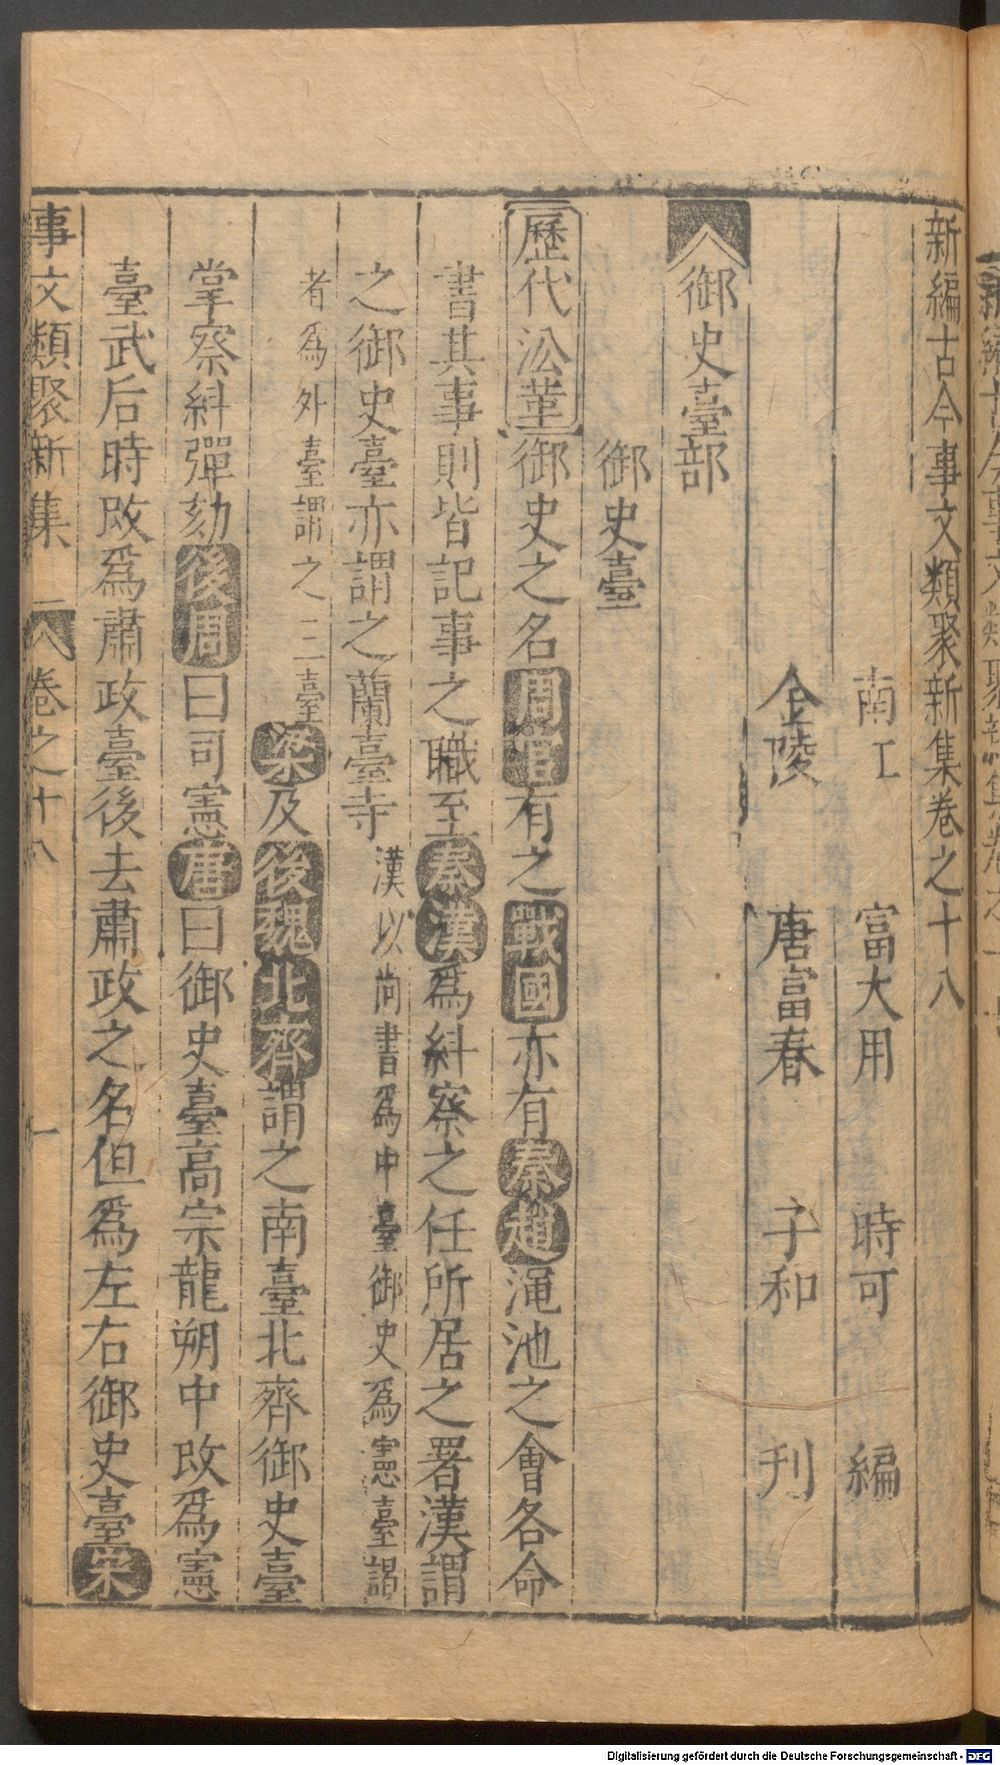 新編古今事文類聚新集卷之十八
南江　富大用　時可　編
金陵　唐富春　子和　刊
御史臺部
御史臺
歷代沿革御史之名周官有之戰國亦有秦趙澠池之會各命
書其事則皆記事之職至秦漢爲糾察之任所居之署漢謂
之御史臺亦謂之蘭臺寺漢以尚書爲中臺御史爲憲臺謁
者爲外臺謂之三臺梁及後魏北齊謂之南臺北齊御史臺
掌察糾彈劾後周曰司憲唐曰御史臺高宗龍朔中改爲憲
臺武后時改爲肅政臺後去肅政之名但爲左右御史臺宋
事文類聚新集　卷之十八　一
Digitalisierung gefördert durch die Deutsche Forschungsgemeinschaft - DFG